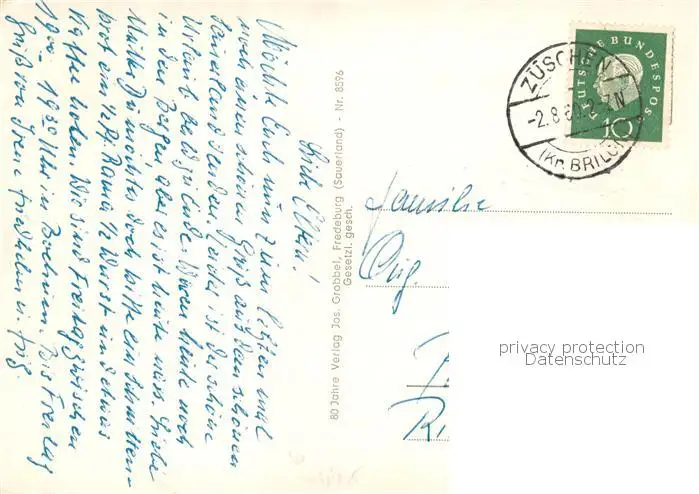 Liebe Eltern!
Möchte Euch nun zum letzten mal
noch einen schönen Gruß aus dem schönen
Sauerland senden. Leider ist der schöne
Urlaub bald zu Ende. Waren heute noch
in den Bergen aber es ist heute nass. Liebe
Mutter Du möchtest doch bitte ein
brot ein 1/2 Pf. Rama 1/2 Wurst und etwas
Kaffee holen. Wir sind Freitag zwischen
1900 - 1930 Uhr in Bochum. Bis Freitag
Gruß von Irene Friedhelm u.
80 Jahre Verlag Jos. Grobbel, Fredeburg (Sauerland) - Nr. 8596
Gesetzl. gesch.
DEUTSCHE BUNDESPOS
10
ZÜSCHEN
-2.8.60.
(Kr. BRILO
Familie
privacy protection
Datenschutz